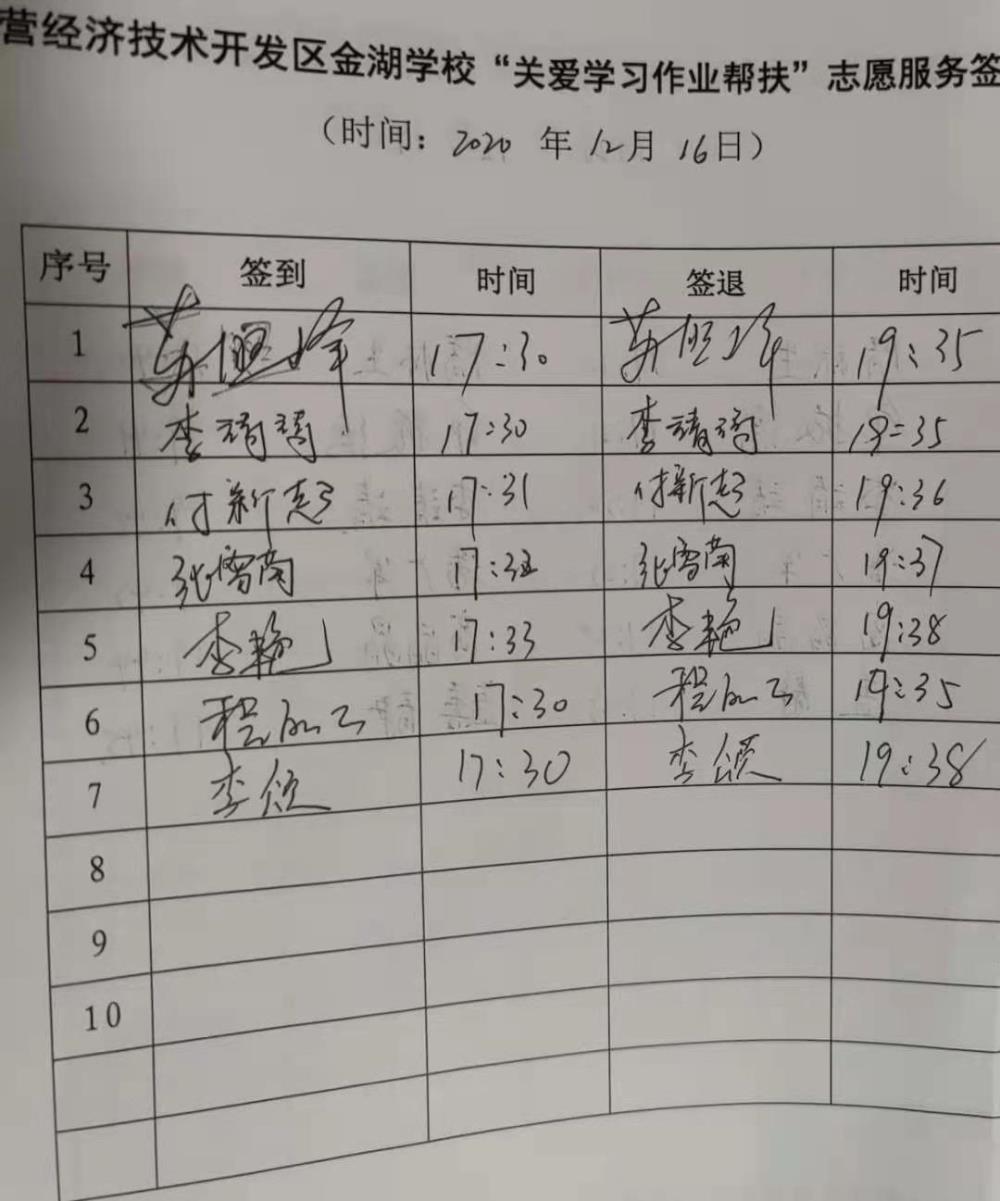 营经济技术开发区金湖学校“关爱学习作业帮扶”志愿服务签
（时间：2020 年 12月 16日）
序号 签到 时间 签退 时间
1 17:30 19:35
2 李琦琦 17:30 李琦琦 19:35
3 付新起 17:31 付新起 19:36
4 张雪菊 17:32 张雪菊 19:37
5 李艳 17:33 李艳 19:38
6 程 17:30 程 19:35
7 李颂 17:30 李颂 19:38
8
9
10